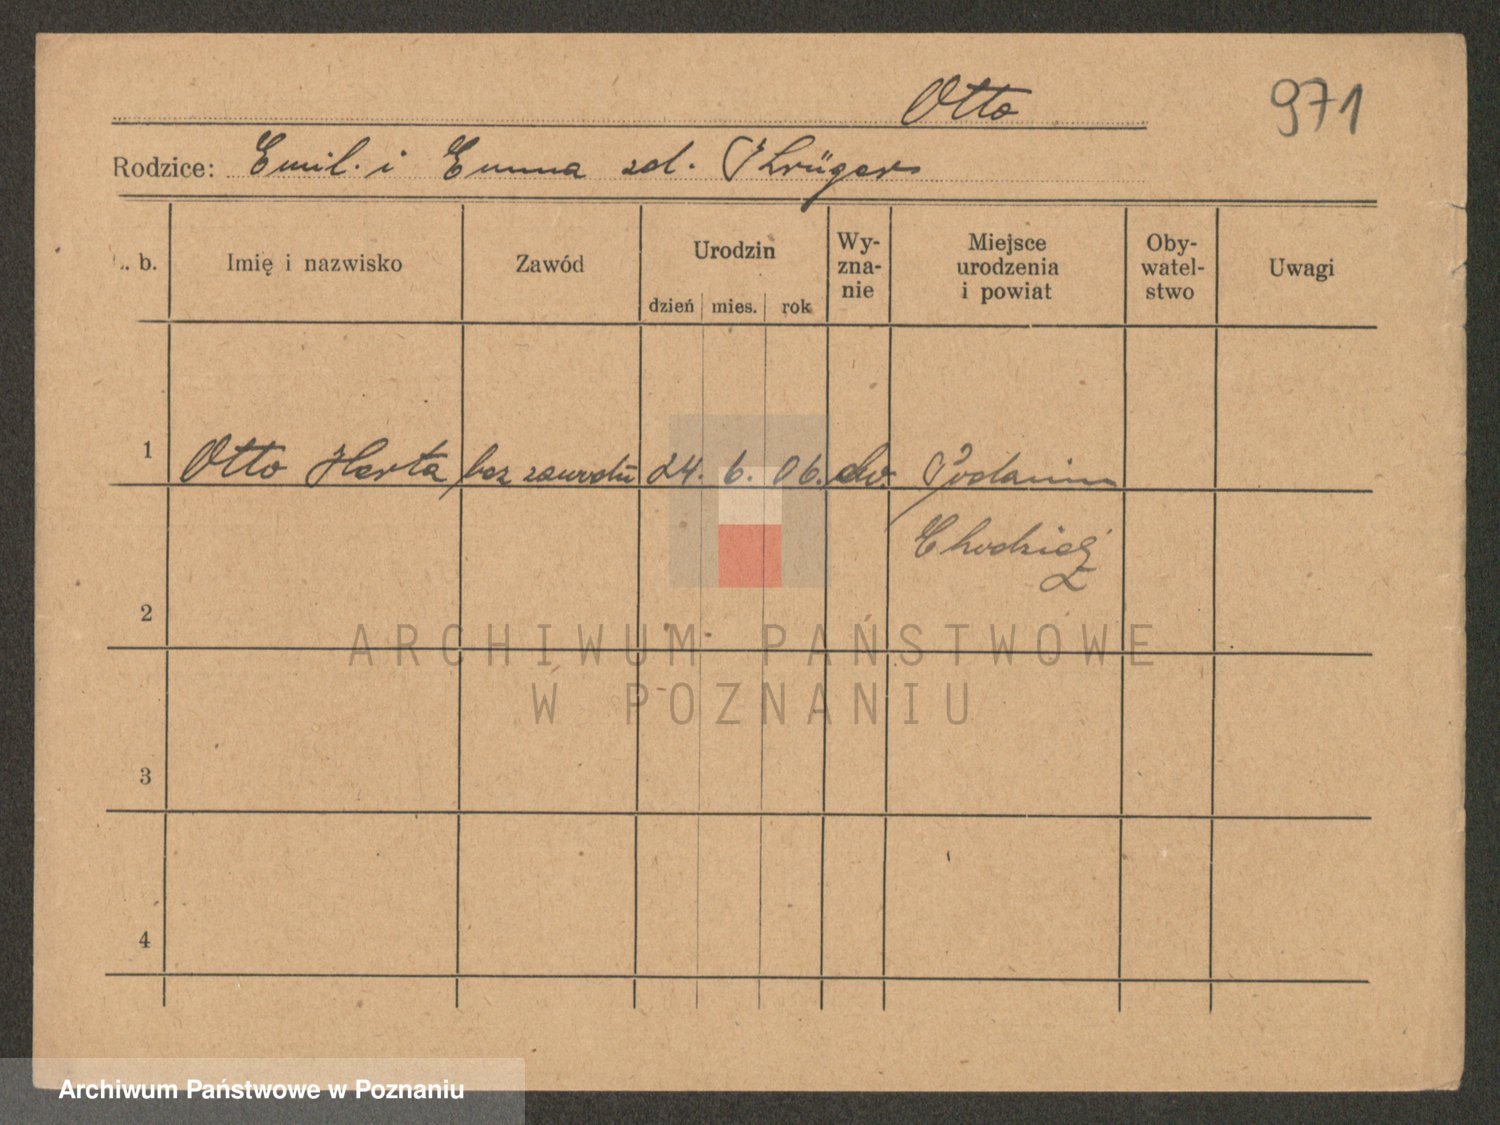 Otto
971
Rodzice: Emil. i Emma zd. Krüger
L. b. Imię i nazwisko Zawód Urodzin dzień mies. rok Wy-zna-nie Miejsce urodzenia i powiat Oby-watel-stwo Uwagi
1 Otto Herta bez zawodu 24. 6. 06. ew. Podanin
Chodzież
2
ARCHIWUM PAŃSTWOWE
W POZNANIU
3
4
Archiwum Państwowe w Poznaniu